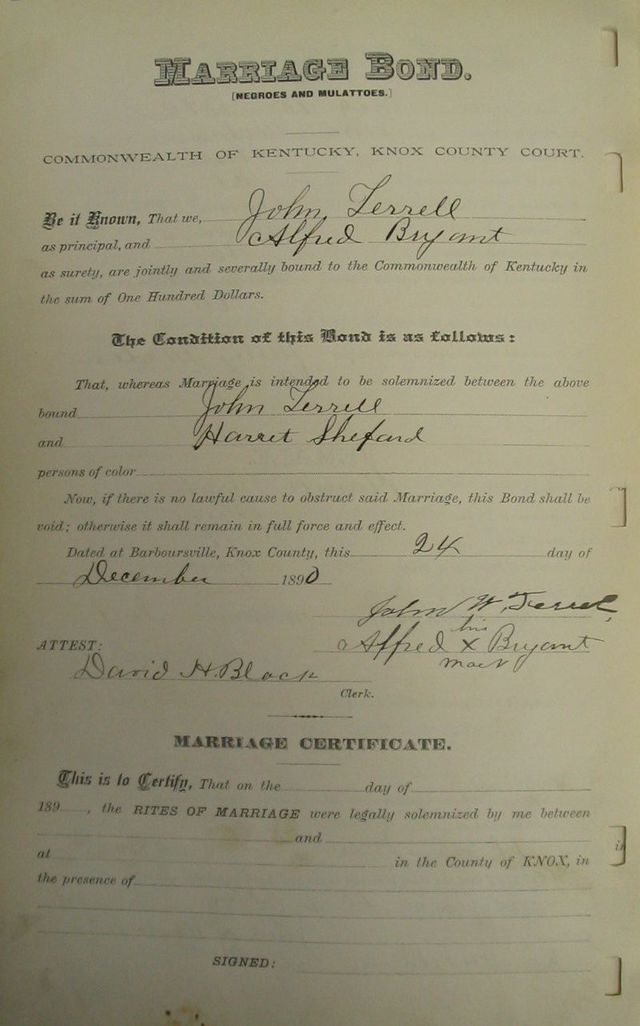 MARRIAGE BOND.
[NEGROES AND MULATTOES.]
COMMONWEALTH OF KENTUCKY, KNOX COUNTY COURT.
Be it Known, That we, John Terrell
as principal, and Alfred Bryant
as surety, are jointly and severally bound to the Commonwealth of Kentucky in
the sum of One Hundred Dollars.
The Condition of this Bond is as follows:
That, whereas Marriage is intended to be solemnized between the above
bound John Terrell
and Harret Shefard
persons of color
Now, if there is no lawful cause to obstruct said Marriage, this Bond shall be
void; otherwise it shall remain in full force and effect.
Dated at Barboursville, Knox County, this 24 day of
December 1890
John W. Terrell,
his
ATTEST: Alfred X Bryant
mark
David H. Black
Clerk.
MARRIAGE CERTIFICATE.
This is to Certify, That on the day of
189 , the RITES OF MARRIAGE were legally solemnized by me between
and
at in the County of KNOX, in
the presence of
SIGNED: